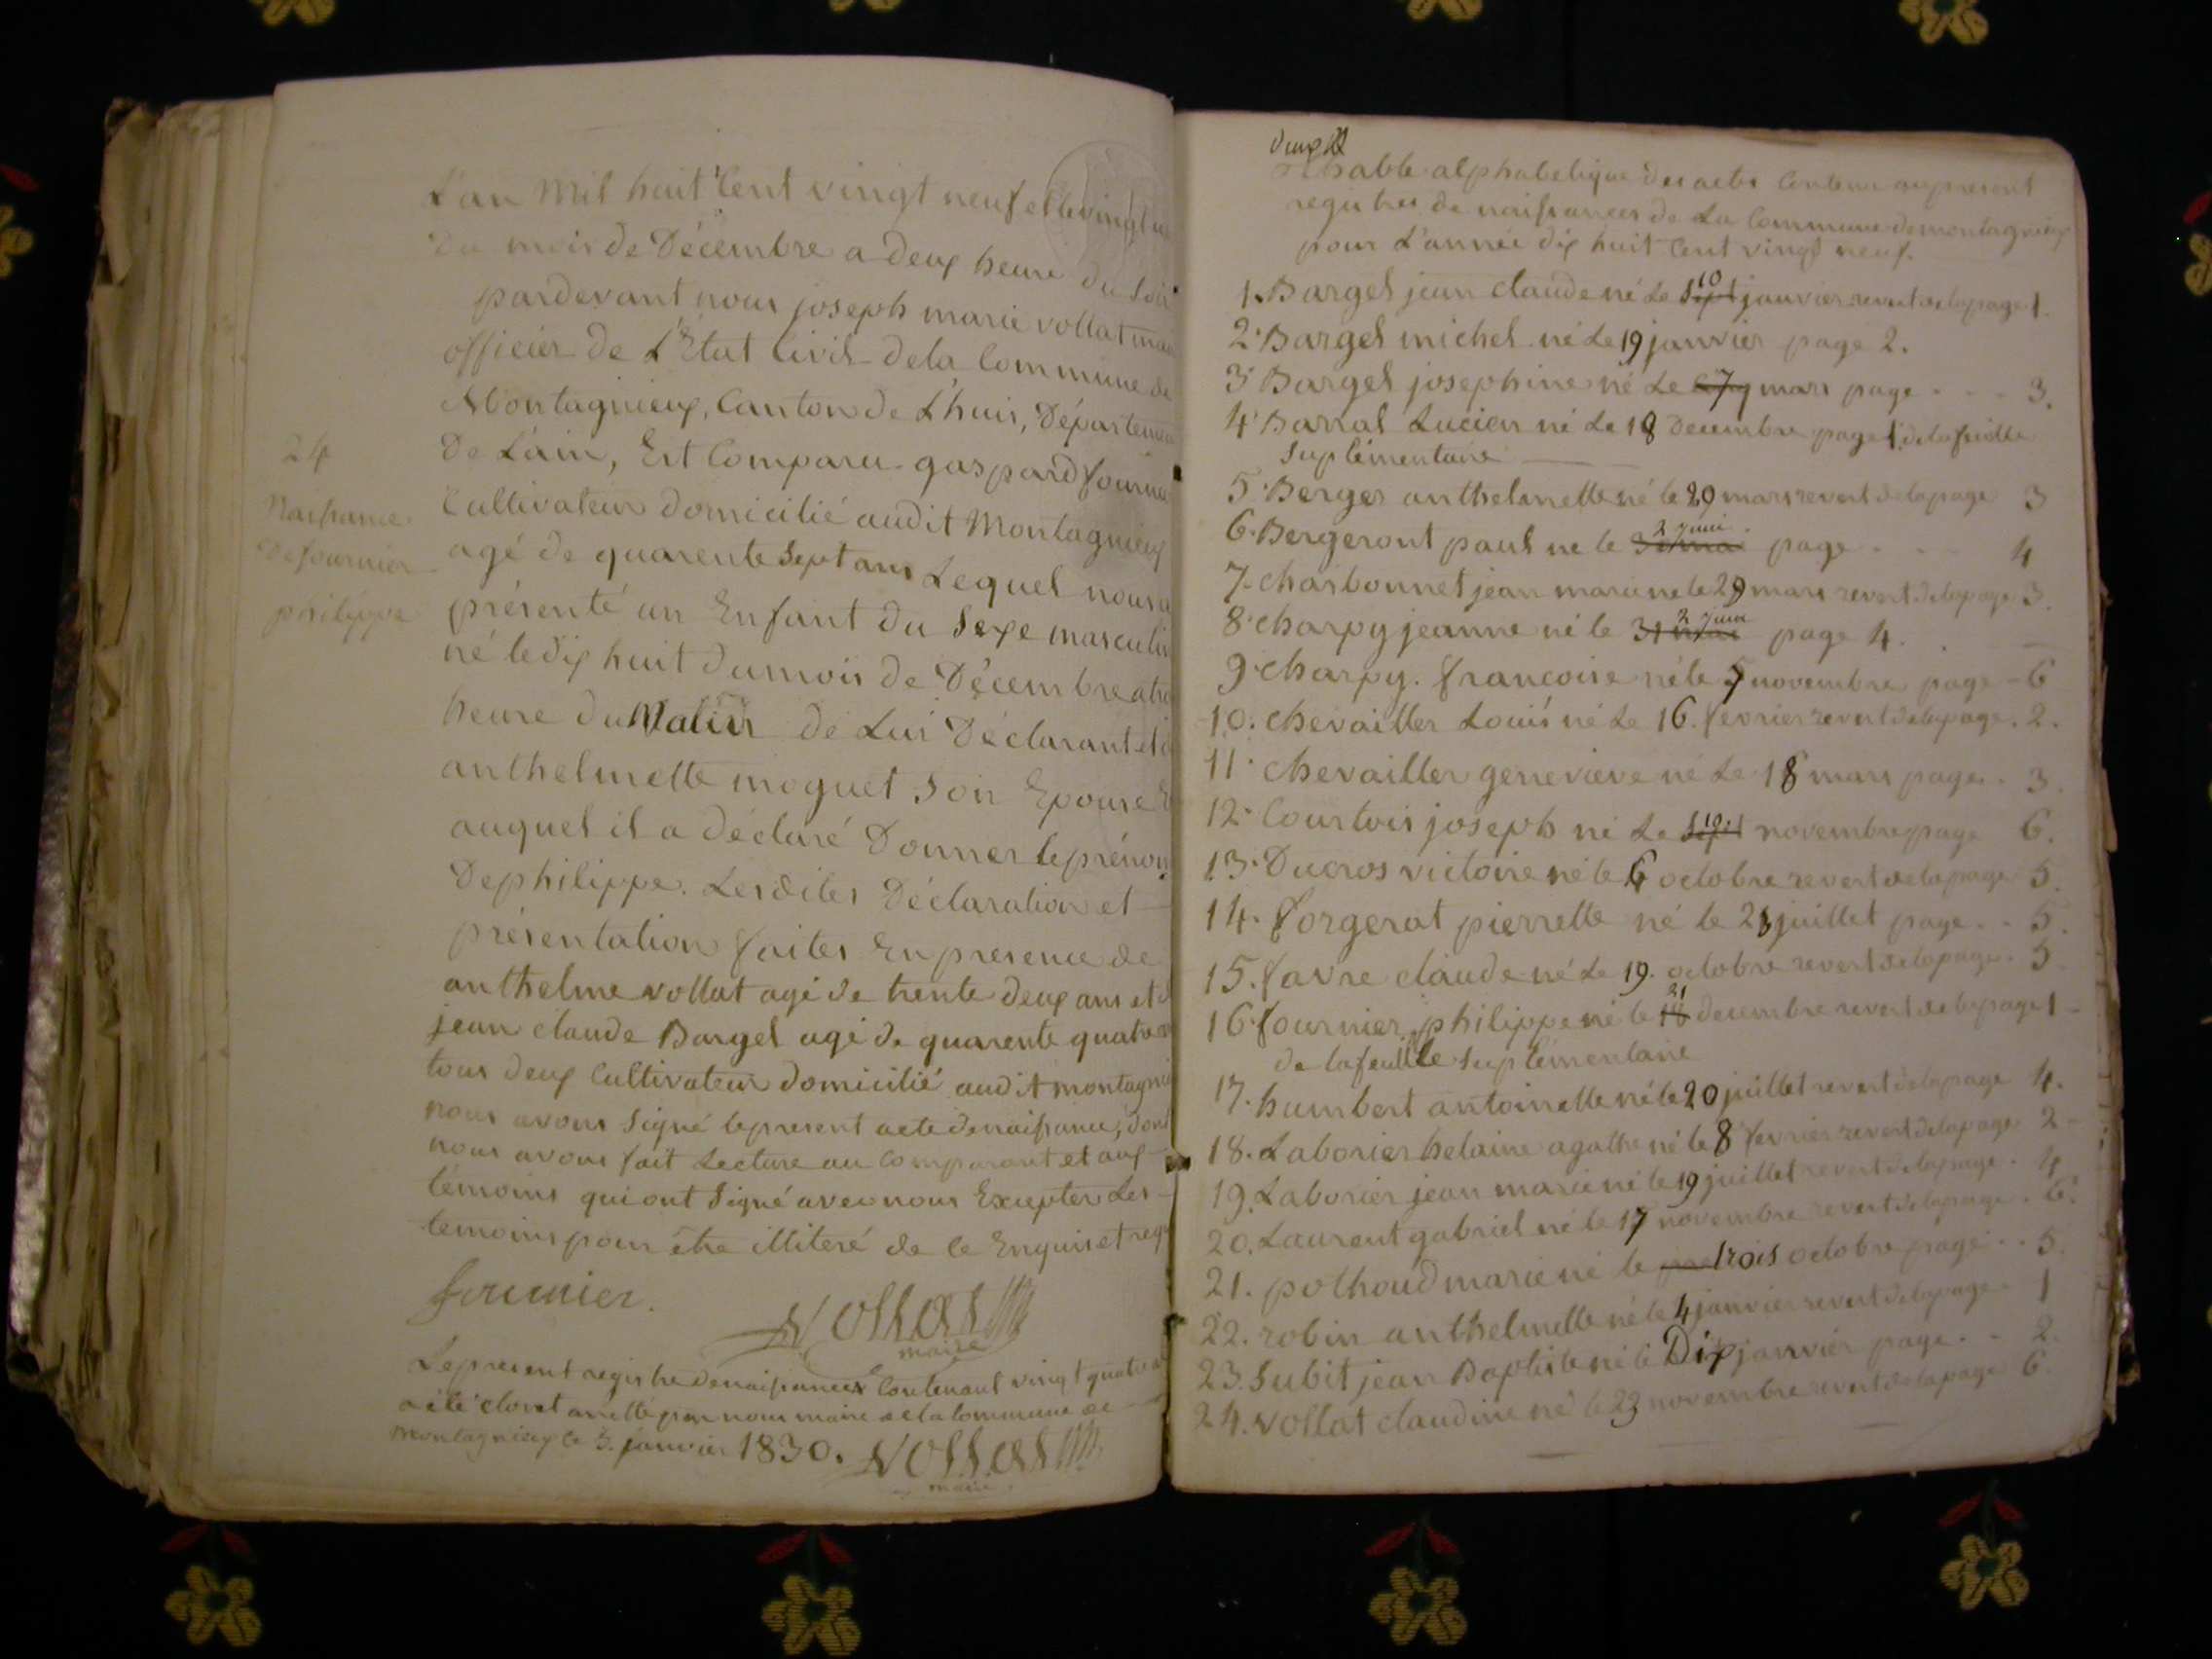 L'an Mil huit Cent vingt neuf et le vingt
Du mois de Décembre a deux heure du soir
pardevant nous joseph marie vollat
officier de L'Etat Civil de la Commune de
Montagnieux, Canton de L'huis, Département
De L'ain, Est Comparu gaspard fournier
Cultivateur Domicilié audit Montagnieux
agé de quarente Sept ans Lequel nous a
présenté un Enfant du Sexe masculin
né le dix huit du mois de Décembre a
heure du Matin de Lui Déclarant et
anthelmette moguet Son Epouse
auquel il a déclaré Donner le prénom
De philippe. Lesdites Déclaration et
présentation faites En presence de
anthelme vollat agé de trente deux ans et
jean claude Bargel agé de quarente quatre
tous deux Cultivateur domicilié audit montagnieux
nous avons Signé le present acte de naissance, dont
nous avons fait Lecture au Comparant et aux
témoins qui ont Signé avec nous Excepter Les
temoins pour être illiteré de ce Enquis et
fournier. Vollat
maire
Le present registre de naissances Contenant vingt quatre
a été clos et arretté par nous maire de la Commune de
Montagnieux le 3. janvier 1830. Vollat
maire
24
Naissance
De fournier
philippe
Thable alphabetique des actes Contenu au present
registres de naissances de La Commune de montagnieux
pour L'année dix huit Cent vingt neuf.
1. Bargel jean claude né Le sept 10 janvier revert de la page 1.
2. Bargel michel né Le 19 janvier page 2.
3. Bargel josephine né Le 7 mars page . . . 3.
4. Barral Lucien né Le 18 Decembre page 1. de la feuille
Suplémentaire
5. Berger anthelmette né le 29 mars revert de la page 3
6. Bergeront paul né le 2 juin page . . 4
7. charbonnet jean marie né le 29 mars revert de la page 3.
8. charpy jeanne né le 31 mai 2 juin page 4.
9. charpy. francoise né le 7 novembre page - 6
10. chevailler Louis né Le 16. fevrier revert de la page. 2.
11. chevailler genevieve né Le 18 mars page . 3.
12. Courtois joseph né Le sept 10. novembre page 6.
13. Ducros victoire né le 6 octobre revert de la page 5.
14. forgerat pierrette né le 23 juillet page . . 5.
15. favre claude né Le 19. octobre revert de la page. 5
16. fournier, philippe né le 18 21 decembre revert de la page 1 -
de la feuille Suplémentaire
17. humbert antoinette né le 20 juillet revert de la page 4.
18. Laborier helaine agathe né le 8 fevrier revert de la page 2 -
19. Laborier jean marie né le 19 juillet revert de la page . 4
20. Laurent gabriel né le 17 novembre revert de la page . 6.
21. pothoud marie né le trois octobre page . . 5.
22. robin anthelmette né le 4 janvier revert de la page. 1
23. Subit jean Baptiste né le Dix janvier page . . 2.
24. vollat claudine né le 23 novembre revert de la page 6.